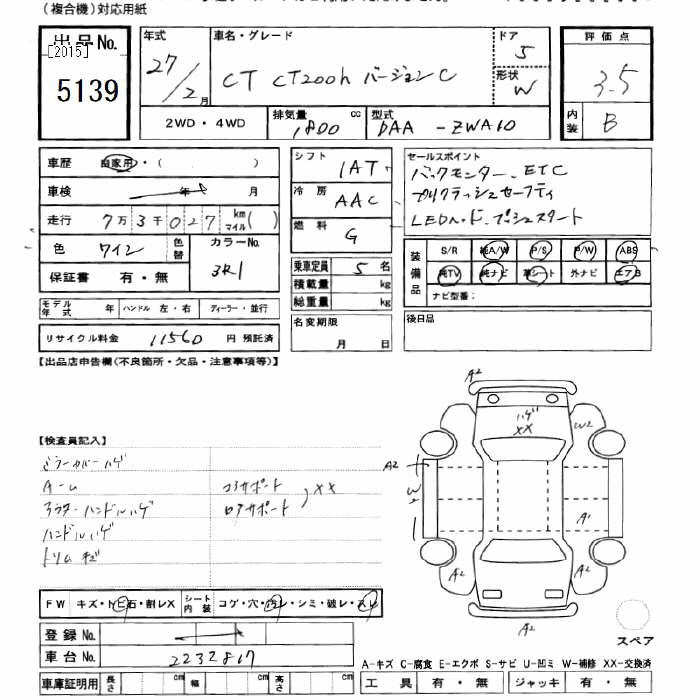 (複合機)対応用紙
出品No.
[2015]
5139
年式
27/2月
車名・グレード
CT CT200h バージョンC
ドア
5
形状
W
評価点
3.5
内装
B
2WD・4WD
排気量
1800 cc
型式
DAA-ZWA10
車歴
自家用・( )
車検
年 月
走行
7万3千027 km マイル( )
色
ワイン
色替
カラーNo.
3R1
保証書 有・無
モデル年式 年
ハンドル 左・右
ディーラー・並行
リサイクル料金 11560 円 預託済
シフト
1AT
冷房
AAC
燃料
G
乗車定員 5 名
積載量 kg
総重量 kg
名変期限
月 日
セールスポイント
バックモニター、ETC
プリクラッシュセーフティ
LEDヘッド、プシュスタート
装備品
S/R 純A/W P/S P/W ABS
純TV 純ナビ 革シート 外ナビ エアB
ナビ型番:
後日品
【出品店申告欄(不良箇所・欠品・注意事項等)】
【検査員記入】
ミラーカバーハゲ
コアサポート
XX
アウターハンドルハゲ
ロアサポート
ハンドルハゲ
トリムキズ
A2
ハゲ
XX
W2
A2
W2
A1
A2
A2
A2
FW キズ・トビ石・割レX
シート内装 コゲ・穴・汚レ・シミ・破レ・スレ
登録No.
車台No. 2232817
車庫証明用 長さ cm 幅 cm 高さ cm
スペア
A-キズ C-腐食 E-エクボ S-サビ U-凹ミ W-補修 XX-交換済
工具 有・無 ジャッキ 有・無